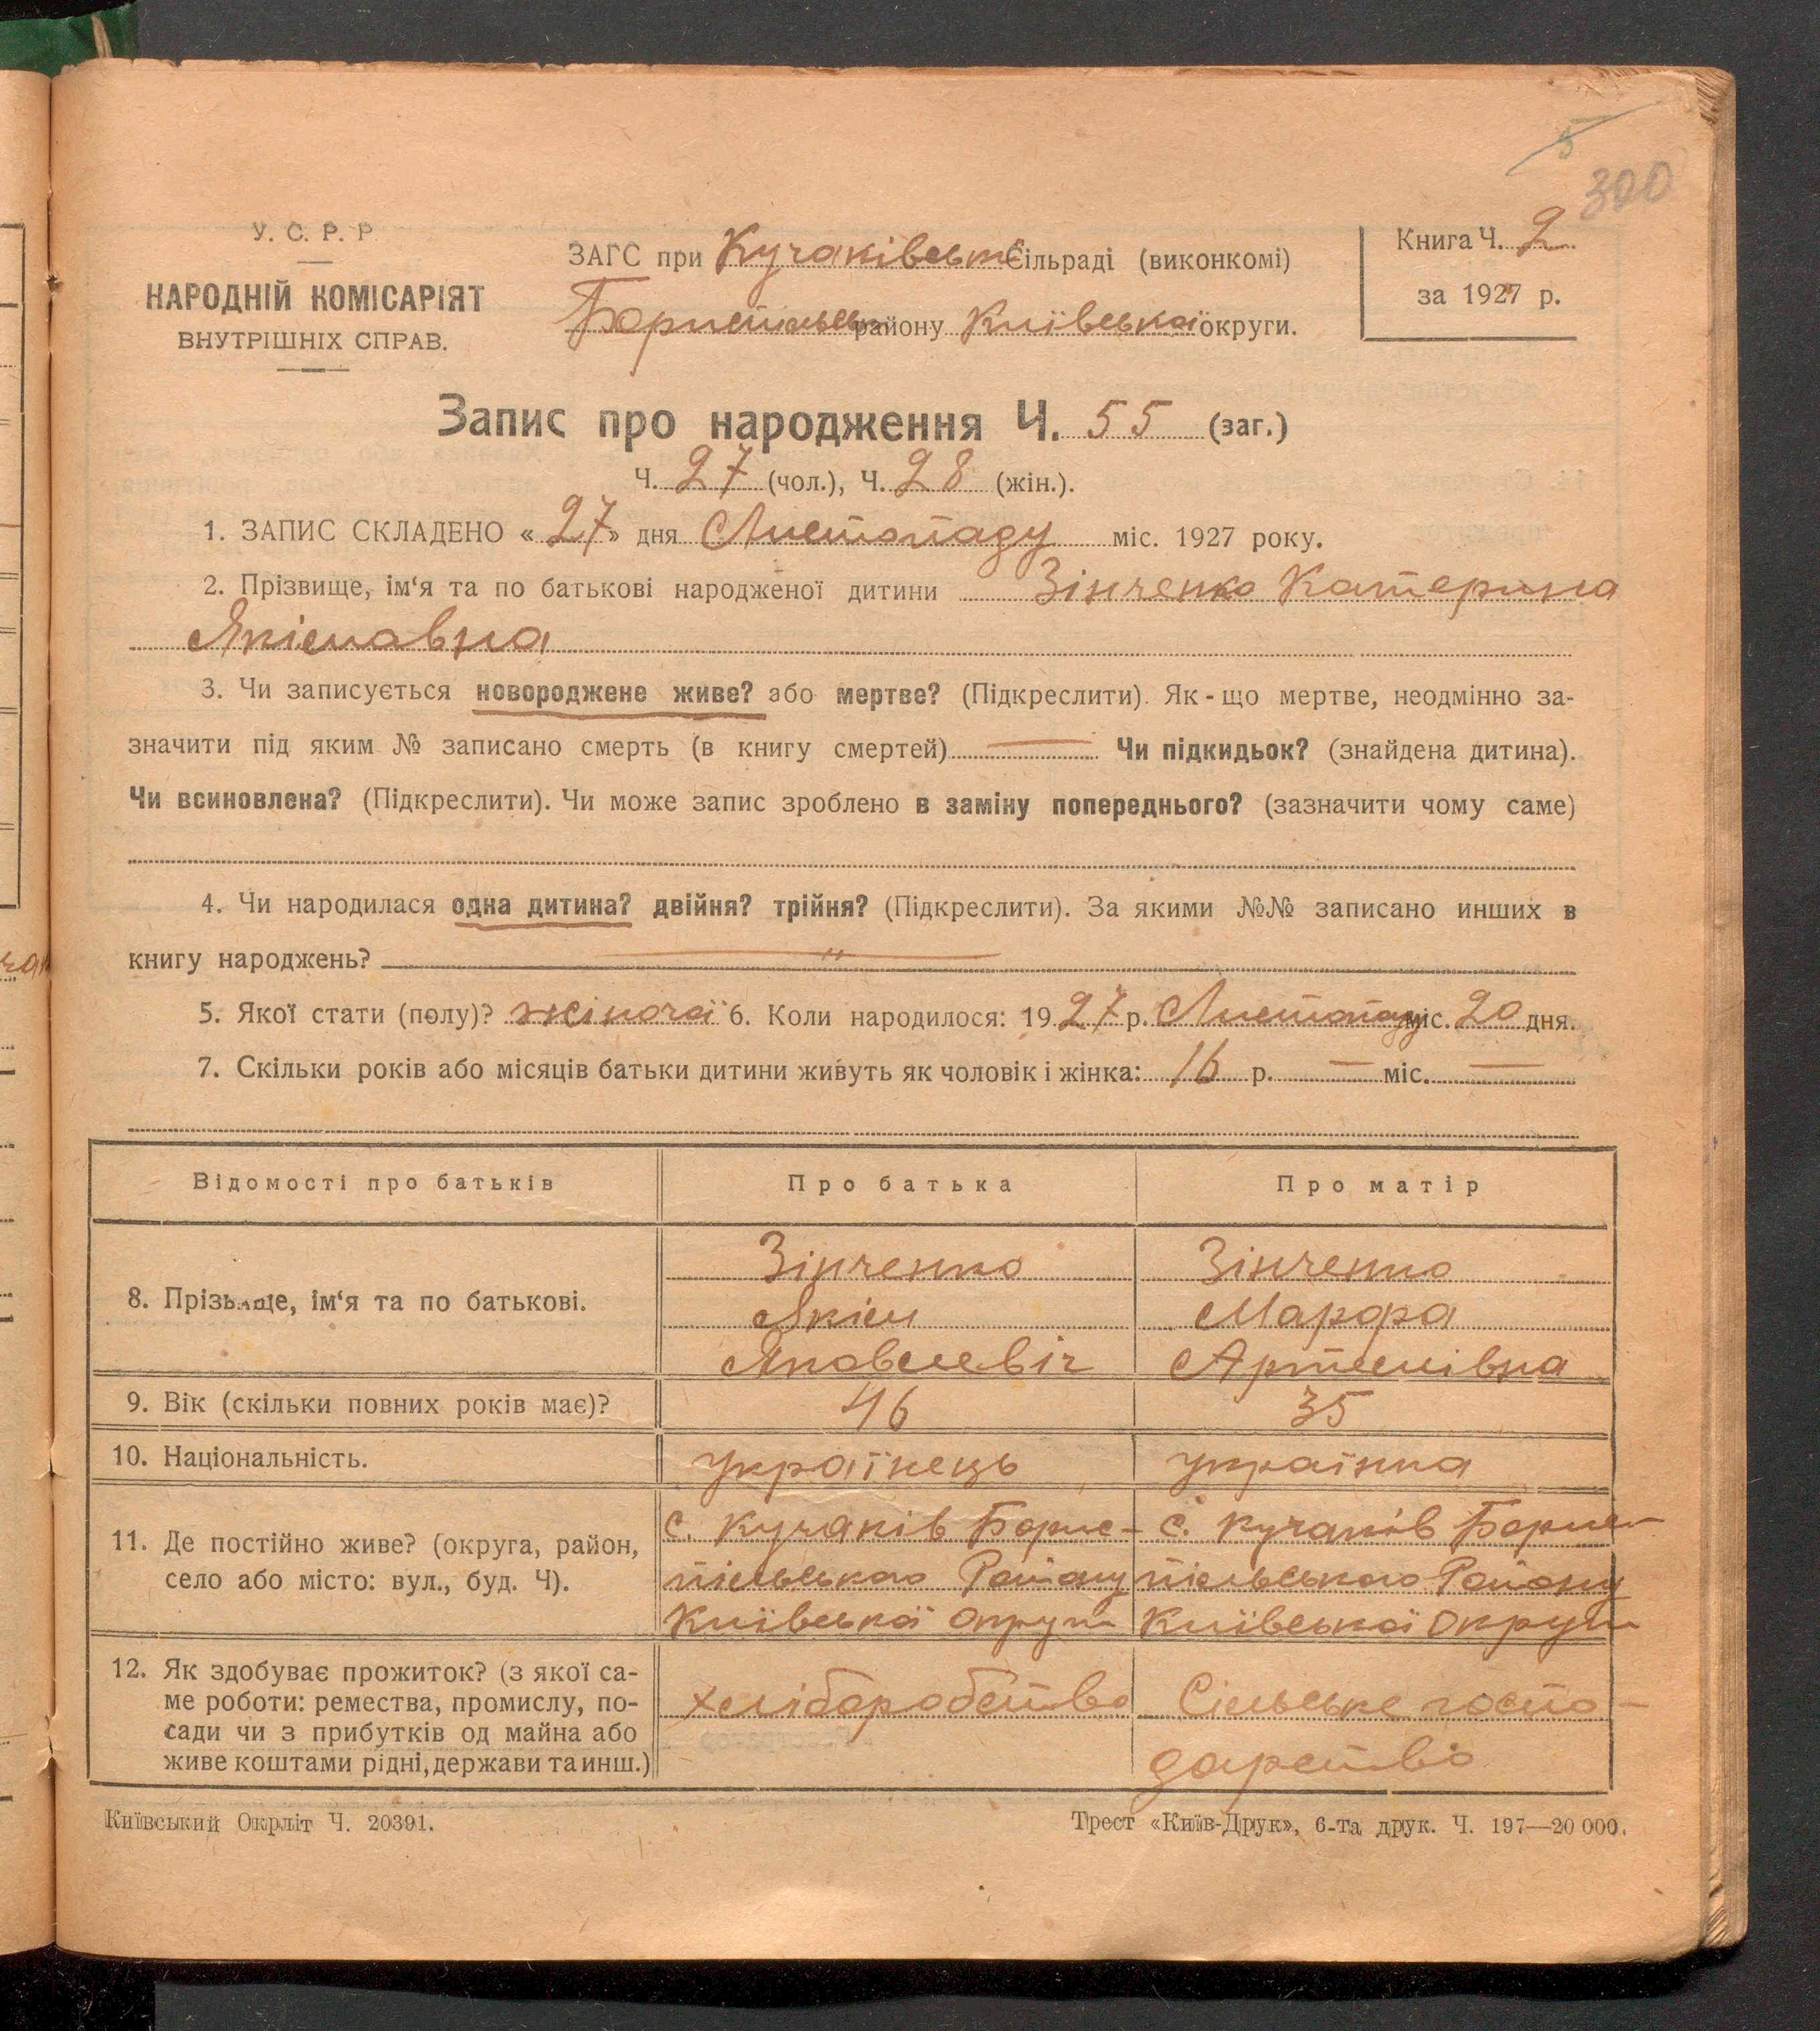 5
300
У. С. Р. Р.
НАРОДНІЙ КОМІСАРІЯТ
ВНУТРІШНІХ СПРАВ.
ЗАГС при Кучаківські Сільраді (виконкомі)
Бориспільськ району Київської округи.
Книга Ч. 2
за 1927 р.
Запис про народження Ч. 55 (заг.)
Ч. 27 (чол.), Ч. 28 (жін.).
1. ЗАПИС СКЛАДЕНО « 27 » дня Листопаду міс. 1927 року.
2. Прізвище, ім‘я та по батькові народженої дитини Зінченко Катерина
Якімавна
3. Чи записується новороджене живе? або мертве? (Підкреслити). Як-що мертве, неодмінно за-
значити під яким № записано смерть (в книгу смертей) — Чи підкидьок? (знайдена дитина).
Чи всиновлена? (Підкреслити). Чи може запис зроблено в заміну попереднього? (зазначити чому саме)
4. Чи народилася одна дитина? двійня? трійня? (Підкреслити). За якими №№ записано инших в
книгу народжень? — „ —
5. Якої стати (полу)? жіночої 6. Коли народилося: 1927 р. Листопаду міс. 20 дня.
7. Скільки років або місяців батьки дитини живуть як чоловік і жінка: 16 р. — міс. —
Відомості про батьків Про батька Про матір
8. Прізвище, ім‘я та по батькові.
Зінченко Зінченко
Якім Марфа
Яковлевіч Артемівна
9. Вік (скільки повних років має)? 46 35
10. Національність. українець українка
11. Де постійно живе? (округа, район,
село або місто: вул., буд. Ч).
с. Кучаків Борис- с. Кучаків Борис-
пільського Району пільського Району
Київської округи Київської округи
12. Як здобуває прожиток? (з якої са-
ме роботи: ремества, промислу, по-
сади чи з прибутків од майна або
живе коштами рідні, держави та инш.)
хліборобство Сільське госпо-
дарство
Київський Окрліт Ч. 20391.
Трест «Київ-Друк», 6-та друк. Ч. 197—20 000.